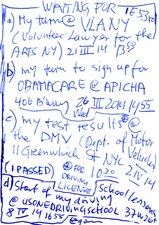 WAITING FOR
a) My turn @ VLANY
(Volunteer Lawyer for the
ARTS NY) 21 III 14 1355
b) my turn to sign up for
OBAMACARE @ APICHA
400 B'way 26 III 2014 1455
Wed
c) my test results @
the DMV (Dept. of Motor
11 Greenwich St NYC Vehicles)
(I PASSED) @ FOR 1020 2 IV 14
DRIVING LICENSE
d) Start of my driving school lessons
@ USONEDRIVINGSCHOOL
8 IV 14 1655